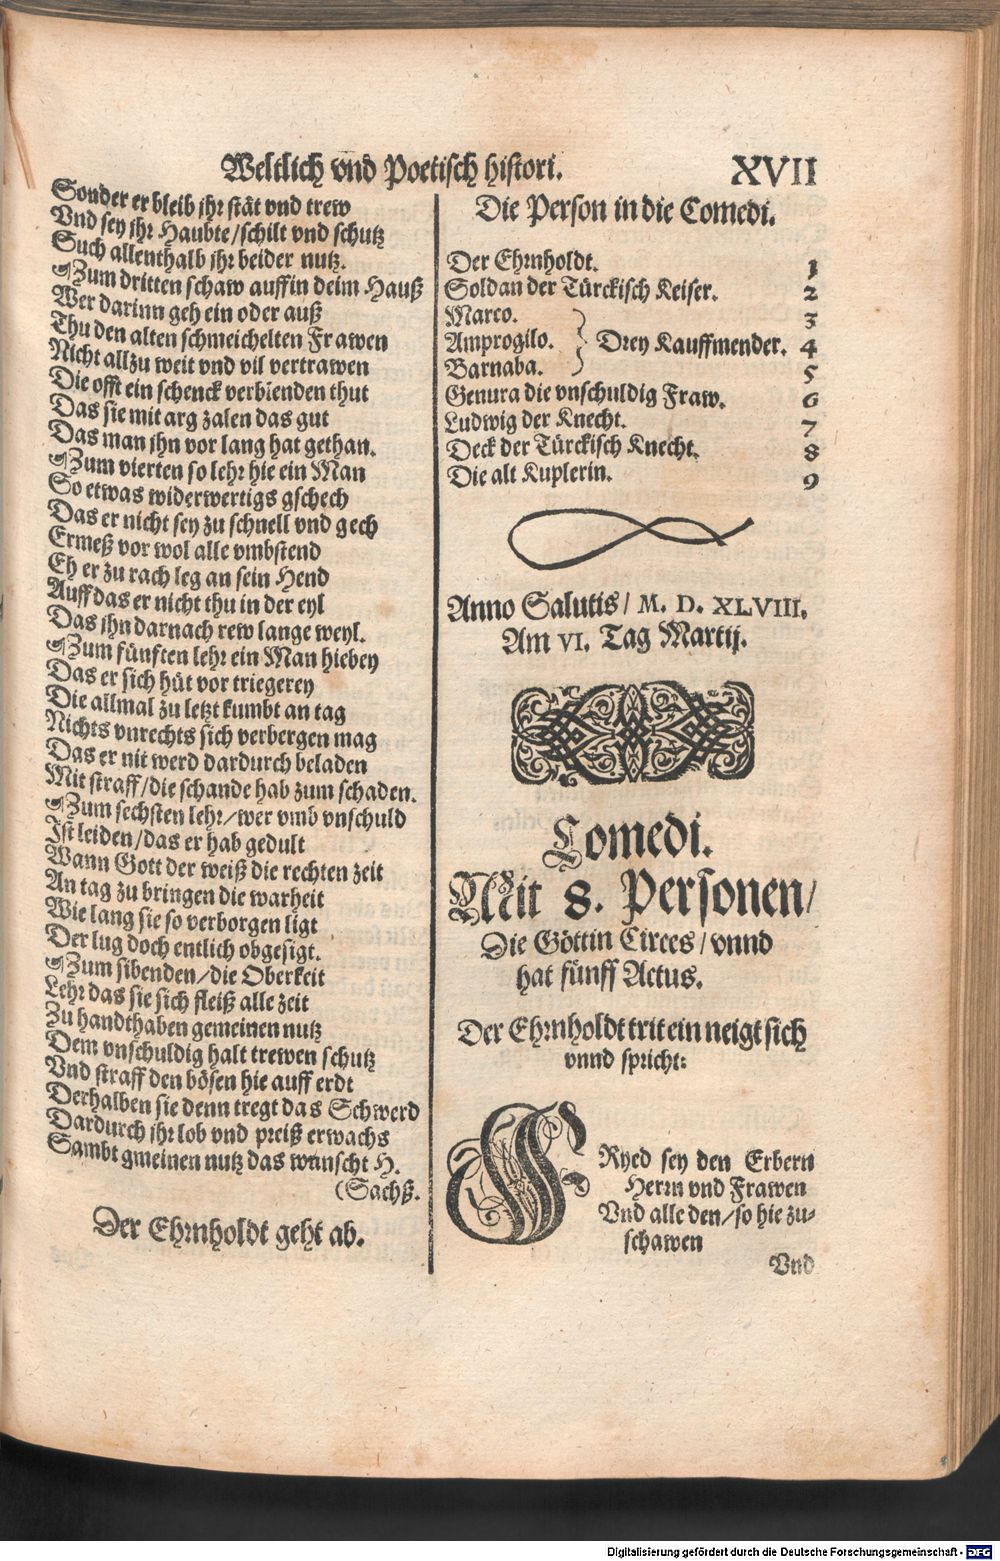 Weltlich vnd Poetisch histori. XVII
Sonder er bleib jhr stät vnd trew
Vnd sey jhr Haubte/schilt vnd schutz
Such allenthalb jhr beider nutz.
¶Zum dritten schaw auff in deim Hauß
Wer darinn geh ein oder auß
Thu den alten schmeichelten Frawen
Nicht allzu weit vnd vil vertrawen
Die offt ein schenck verblenden thut
Das sie mit arg zalen das gut
Das man jhn vor lang hat gethan.
¶Zum vierten so lehr hie ein Man
So etwas widerwertigs gschech
Das er nicht sey zu schnell vnd gech
Ermeß vor wol alle vmbstend
Eh er zu rach leg an sein Hend
Auff das er nicht thu in der eyl
Das jhn darnach rew lange weyl.
¶Zum fünften lehr ein Man hiebey
Das er sich hüt vor triegerey
Die allmal zu letzt kumbt an tag
Nichts vnrechts sich verbergen mag
Das er nit werd dardurch beladen
Mit straff/die schande hab zum schaden.
¶Zum sechsten lehr/wer vmb vnschuld
Ist leiden/das er hab gedult
Wann Gott der weiß die rechten zeit
An tag zu bringen die warheit
Wie lang sie so verborgen ligt
Der lug doch entlich obgesigt.
¶Zum sibenden/die Oberkeit
Lehr das sie sich fleiß alle zeit
Zu handthaben gemeinen nutz
Dem vnschuldig halt trewen schutz
Vnd straff den bösen hie auff erdt
Derhalben sie denn tregt das Schwerd
Dardurch jhr lob vnd preiß erwachs
Sambt gmeinen nutz das wünscht H.
(Sachß.
Der Ehrnholdt geht ab.
Die Person in die Comedi.
Der Ehrnholdt. 1
Soldan der Türckisch Keiser. 2
Marco. 3
Amprogilo. } Drey Kauffmender. 4
Barnaba. 5
Genura die vnschuldig Fraw. 6
Ludwig der Knecht. 7
Deck der Türckisch Knecht. 8
Die alt Kuplerin. 9
Anno Salutis/ M. D. XLVIII.
Am VI. Tag Martij.
Comedi.
Mit 8. Personen/
Die Göttin Circes/vnnd
hat fünff Actus.
Der Ehrnholdt trit ein neigt sich
vnnd spricht:
FRyed sey den Erbern
Herrn vnd Frawen
Vnd alle den/so hie zu-
schawen
Vnd
Digitalisierung gefördert durch die Deutsche Forschungsgemeinschaft - DFG